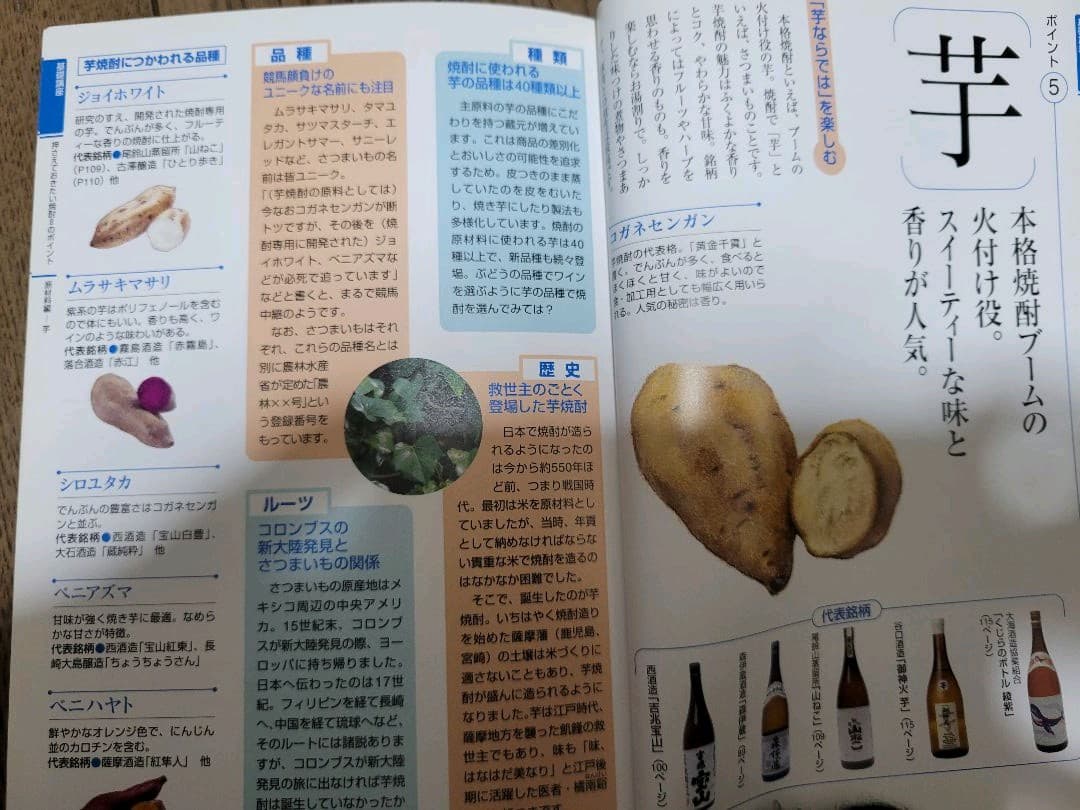 ポイント⑤
芋
本格焼酎ブームの
火付け役。
スイーティーな味と
香りが人気。
「芋ならでは」を楽しむ
本格焼酎といえば、ブームの
火付け役の芋。焼酎で「芋」と
いえば、さつまいものことです。
芋焼酎の魅力はふくよかな香り
とコク、やわらかな甘味。銘柄
によってはフルーツやハーブを
思わせる香りのものも。香りを
楽しむならお湯割りで。しっか
りした味つけの煮物やさつまあ
コガネセンガン
芋焼酎の代表格。「黄金千貫」と
書く。でんぷんが多く、食べると
ほくほくと甘く、味がよいので
食・加工用としても幅広く用いら
れる。人気の秘密は香り。
代表銘柄
大海酒造協業組合
「くじらのボトル 綾紫」
谷口酒造「御神火 芋」(115ページ)
尾鈴山蒸留所「山ねこ」(109ページ)
西酒造「吉兆宝山」(100ページ)
種類
焼酎に使われる
芋の品種は40種類以上
主原料の芋の品種にこだ
わりを持つ蔵元が増えてい
ます。これは商品の差別化
とおいしさの可能性を追求
するため。皮つきのまま蒸
していたのを皮をむいた
り、焼き芋にしたり製法も
多様化しています。焼酎の
原材料に使われる芋は40
種以上で、新品種も続々登
場。ぶどうの品種でワイン
を選ぶように芋の品種で焼
酎を選んでみては?
品種
競馬顔負けの
ユニークな名前にも注目
ムラサキマサリ、タマユ
タカ、サツマスターチ、エ
レガントサマー、サニーレ
ッドなど、さつまいもの名
前は皆ユニーク。
「(芋焼酎の原料としては)
今なおコガネセンガンが断
トツですが、その後を(焼
酎専用に開発された)ジョ
イホワイト、ベニアズマな
どが必死で追っています」
などと書くと、まるで競馬
中継のようです。
なお、さつまいもはそれ
ぞれ、これらの品種名とは
別に農林水産
省が定めた「農
林××号」とい
う登録番号を
もっています。
歴史
救世主のごとく
登場した芋焼酎
日本で焼酎が造ら
れるようになったの
は今から約550年ほ
ど前、つまり戦国時
代。最初は米を原材料とし
ていましたが、当時、年貢
として納めなければならな
い貴重な米で焼酎を造るの
はなかなか困難でした。
そこで、誕生したのが芋
焼酎。いちはやく焼酎造り
を始めた薩摩藩(鹿児島、
宮崎)の土壌は米づくりに
適さないこともあり、芋焼
酎が盛んに造られるように
なりました。芋は江戸時代、
薩摩地方を襲った飢饉の救
世主でもあり、味も「味、
はなはだ美なり」と江戸後
期に活躍した医者・橘南谿
ルーツ
コロンブスの
新大陸発見と
さつまいもの関係
さつまいもの原産地はメ
キシコ周辺の中央アメリ
カ。15世紀末、コロンブ
スが新大陸発見の際、ヨー
ロッパに持ち帰りました。
日本へ伝わったのは17世
紀。フィリピンを経て長崎
へ、中国を経て琉球へなど、
そのルートには諸説ありま
すが、コロンブスが新大陸
発見の旅に出なければ芋焼
酎は誕生していなかったか
芋焼酎につかわれる品種
ジョイホワイト
研究のすえ、開発された焼酎専用
の芋。でんぷんが多く、フルーテ
ィーな香りの焼酎に仕上がる。
代表銘柄●尾鈴山蒸留所「山ねこ」
(P109)、古澤醸造「ひとり歩き」
(P110)他
ムラサキマサリ
紫系の芋はポリフェノールを含む
ので体にもいい。香りも高く、ワ
インのような味わいがある。
代表銘柄●霧島酒造「赤霧島」、
落合酒造「赤江」 他
シロユタカ
でんぷんの豊富さはコガネセンガ
ンと並ぶ。
代表銘柄●西酒造「宝山白豊」、
大石酒造「蔵純粋」 他
ベニアズマ
甘味が強く焼き芋に最適。なめら
かな甘さが特徴。
代表銘柄●西酒造「宝山紅東」、長
崎大島醸造「ちょうちょうさん」
ベニハヤト
鮮やかなオレンジ色で、にんじん
並のカロチンを含む。
代表銘柄●薩摩酒造「紅隼人」 他
基礎講座
押さえておきたい焼酎8のポイント
原材料編-芋